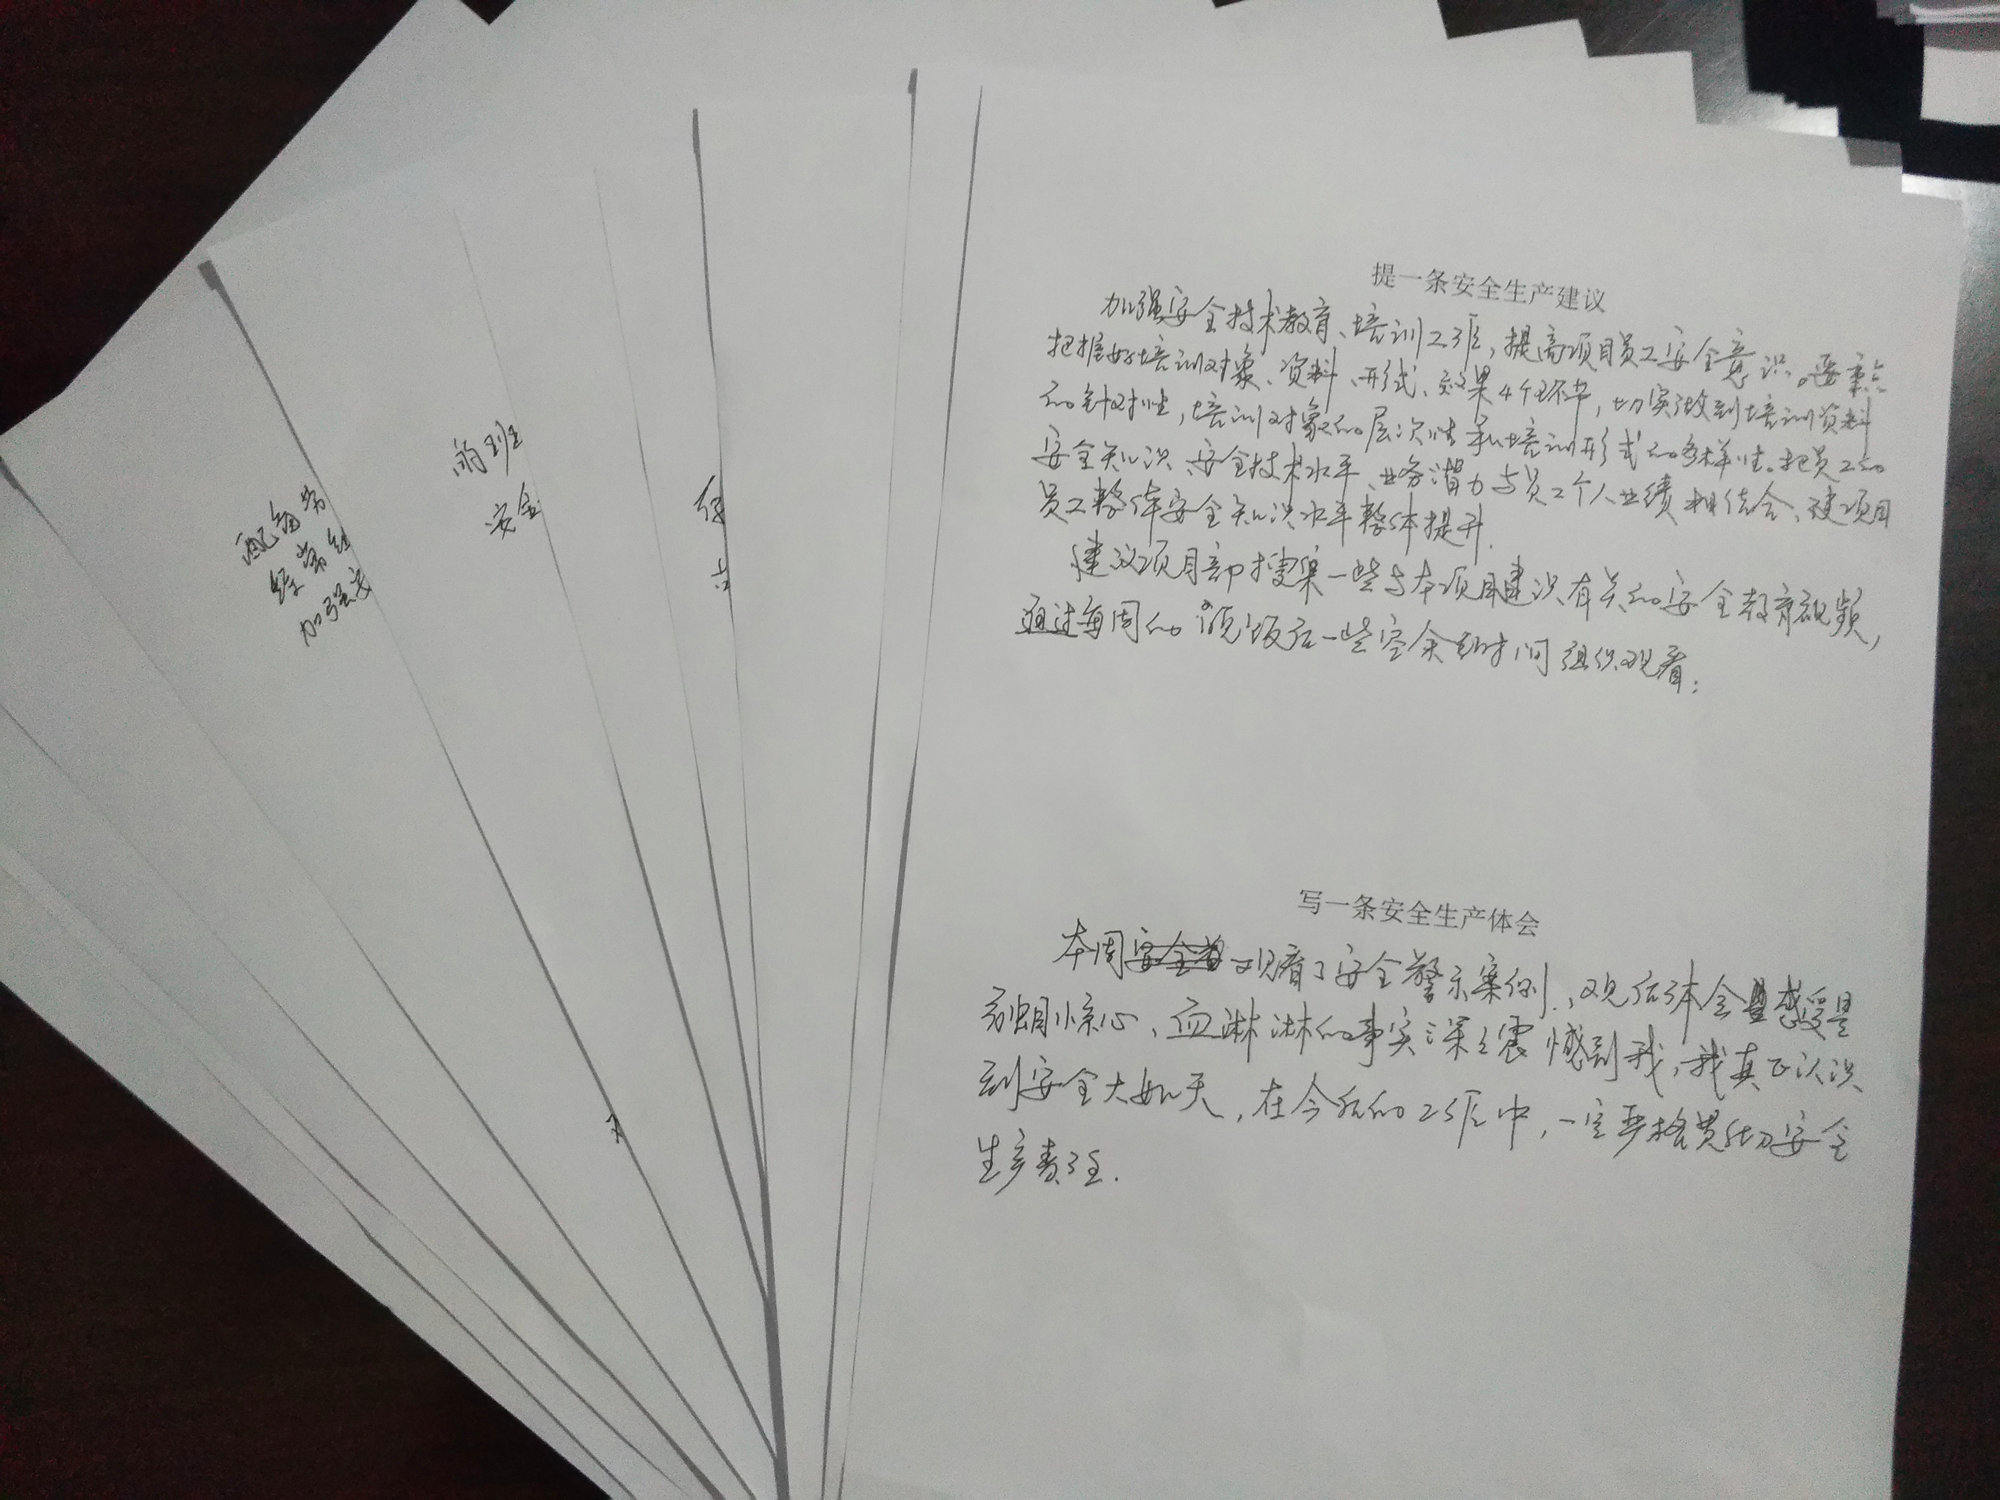 配备劳
经常组
加强安
的班
安全
保
提一条安全生产建议
加强安全技术教育、培训工作，提高项目员工安全意识。要重点
把握好培训对象、资料、形式、效果4个环节，切实做到培训资料
的针对性，培训对象的层次性和培训形式的多样性。把员工的
安全知识、安全技术水平、业务潜力与员工个人业绩相结合、建项目
员工整体安全知识水平整体提升.
建议项目部搜集一些与本项目建设有关的安全教育视频，
通过每周的晚饭后一些空余时间组织观看；
写一条安全生产体会
本周观看了安全警示案例.，观后体会感受是
刻目惊心、血淋淋的事实深深震憾到我，我真正认识
到安全大如天，在今后的工作中，一定严格贯彻安全
生产责任.